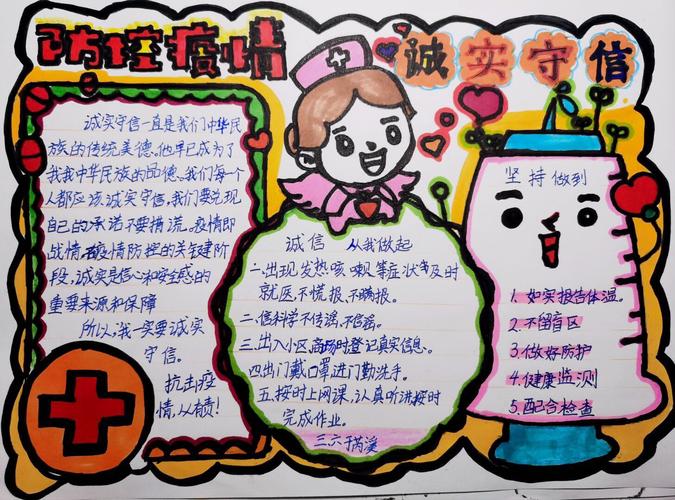 防控疫情
诚实守信
诚实守信一直是我们中华民
族的传统美德。他早已成为了
我我中华民族的品德。我们每一个
人都应该诚实守信。我们要兑现
自己的承诺不要撒谎。疫情即
战情。在疫情防控的关键阶
段,诚实是信心和安全感的
重要来源和保障
所以,我一实要诚实
守信。
抗击疫
情,从有责!
诚信 从我做起
一.出现发热咳嗽等症状及时
就医,不慌报、不瞒报。
二.信科学不传谣,不信谣。
三.出入小区,商场时登记真实信息。
四.出门戴口罩进门勤洗手。
五.按时上网课,认真听讲按时
完成作业。
三六 于芮溪
坚持做到
1.如实报告体温。
2.不留盲区
3.做好防护
4.健康监测
5.配合检查